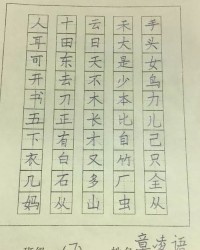 人耳可开书五下衣几妈
十田东去刀正有白石从
云日天不木长才又多山
禾大是少本比自竹厂虫
手头女鸟力儿己只全从
(7) 童凌语